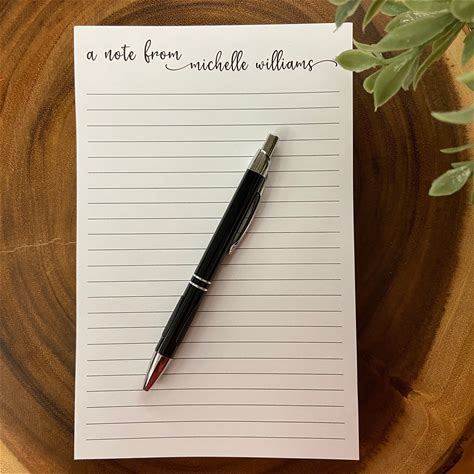 a note from michelle williams